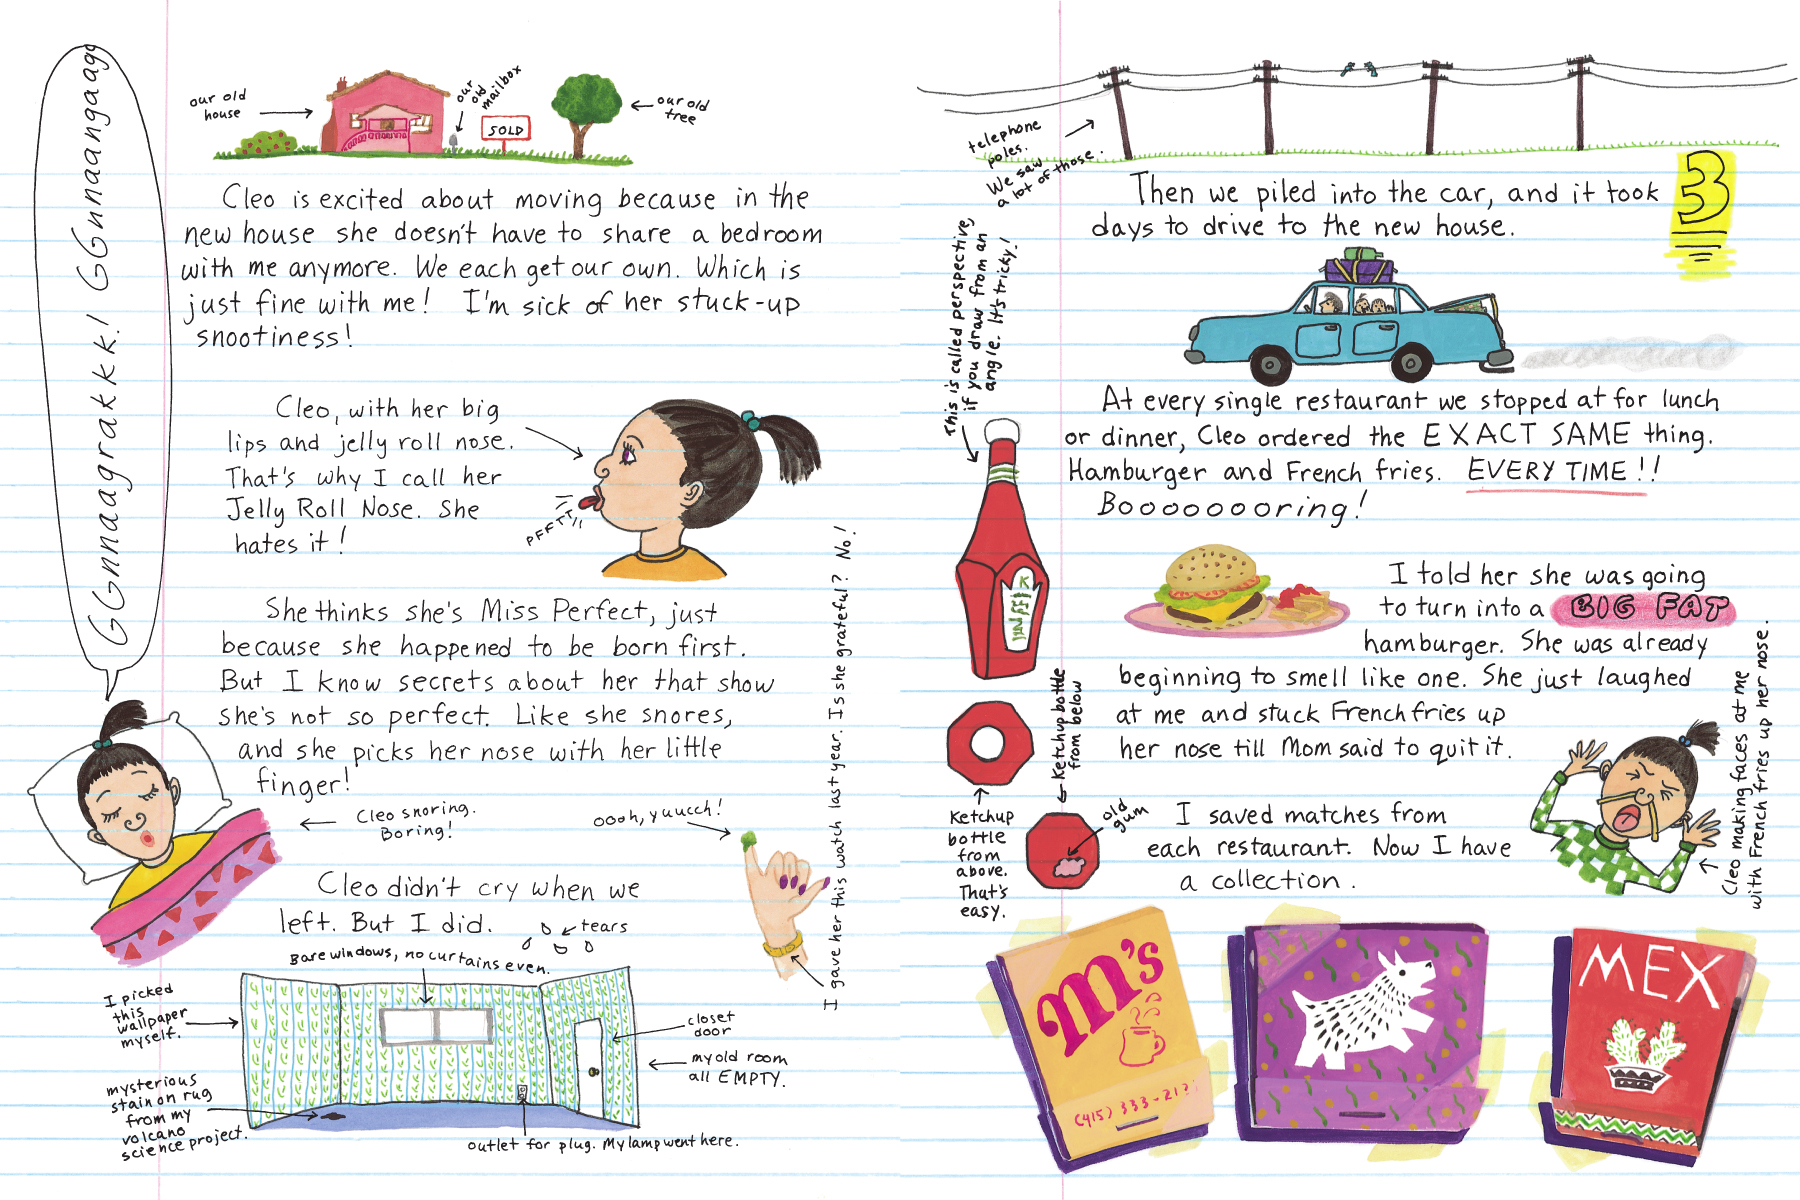 GGnnaagrakkk! GGnnaangaagg
our old
house
our
old
mailbox
SOLD
our old
tree
Cleo is excited about moving because in the
new house she doesn't have to share a bedroom
with me anymore. We each get our own. Which is
just fine with me! I'm sick of her stuck-up
snootiness!
Cleo, with her big
lips and jelly roll nose.
That's why I call her
Jelly Roll Nose. She
hates it!
PFFTT!!
She thinks she's Miss Perfect, just
because she happened to be born first.
But I know secrets about her that show
she's not so perfect. Like she snores,
and she picks her nose with her little
finger!
Cleo snoring.
Boring!
Oooh, yuucch!
I gave her this watch last year. Is she grateful? No!
Cleo didn't cry when we
left. But I did.
tears
Bare windows, no curtains even.
I picked
this
wallpaper
myself.
closet
door
my old room
all EMPTY.
mysterious
stain on rug
from my
volcano
science project.
outlet for plug. My lamp went here.
telephone
poles.
We saw
a lot of those.
3
Then we piled into the car, and it took
days to drive to the new house.
This is called perspective,
if you draw from an
angle. It's tricky!
At every single restaurant we stopped at for lunch
or dinner, Cleo ordered the EXACT SAME thing.
Hamburger and French fries. EVERY TIME!!
Booooooooring!
I told her she was going
to turn into a BIG FAT
hamburger. She was already
beginning to smell like one. She just laughed
at me and stuck French fries up
her nose till Mom said to quit it.
Ketchup
bottle
from
above.
That's
easy.
Ketchup bottle
from below
old
gum
Cleo making faces at me
with French fries up her nose.
I saved matches from
each restaurant. Now I have
a collection.
M's
(415) 333-21
MEX